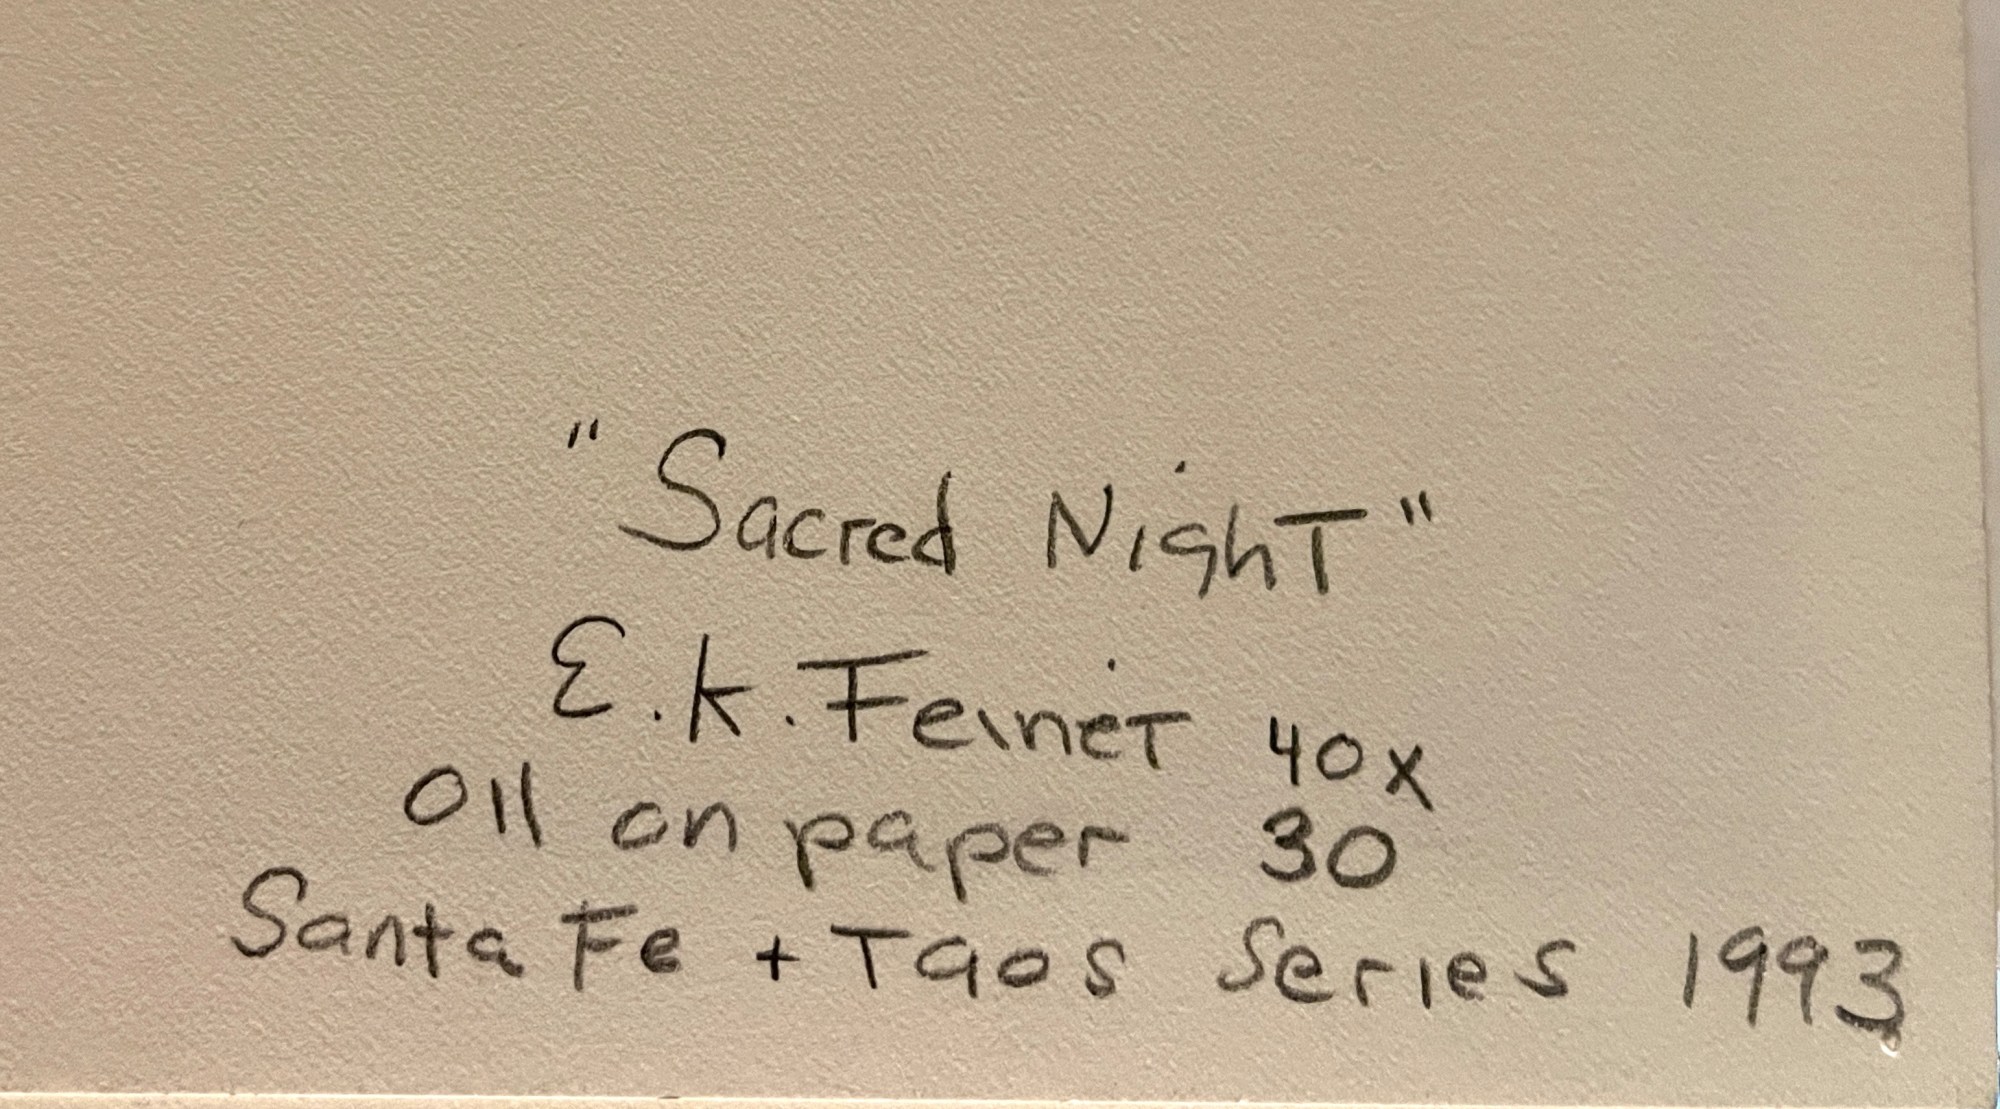 "Sacred Night"
E.K. Feinet 40x
Oil on paper 30
Santa Fe + Taos Series 1993